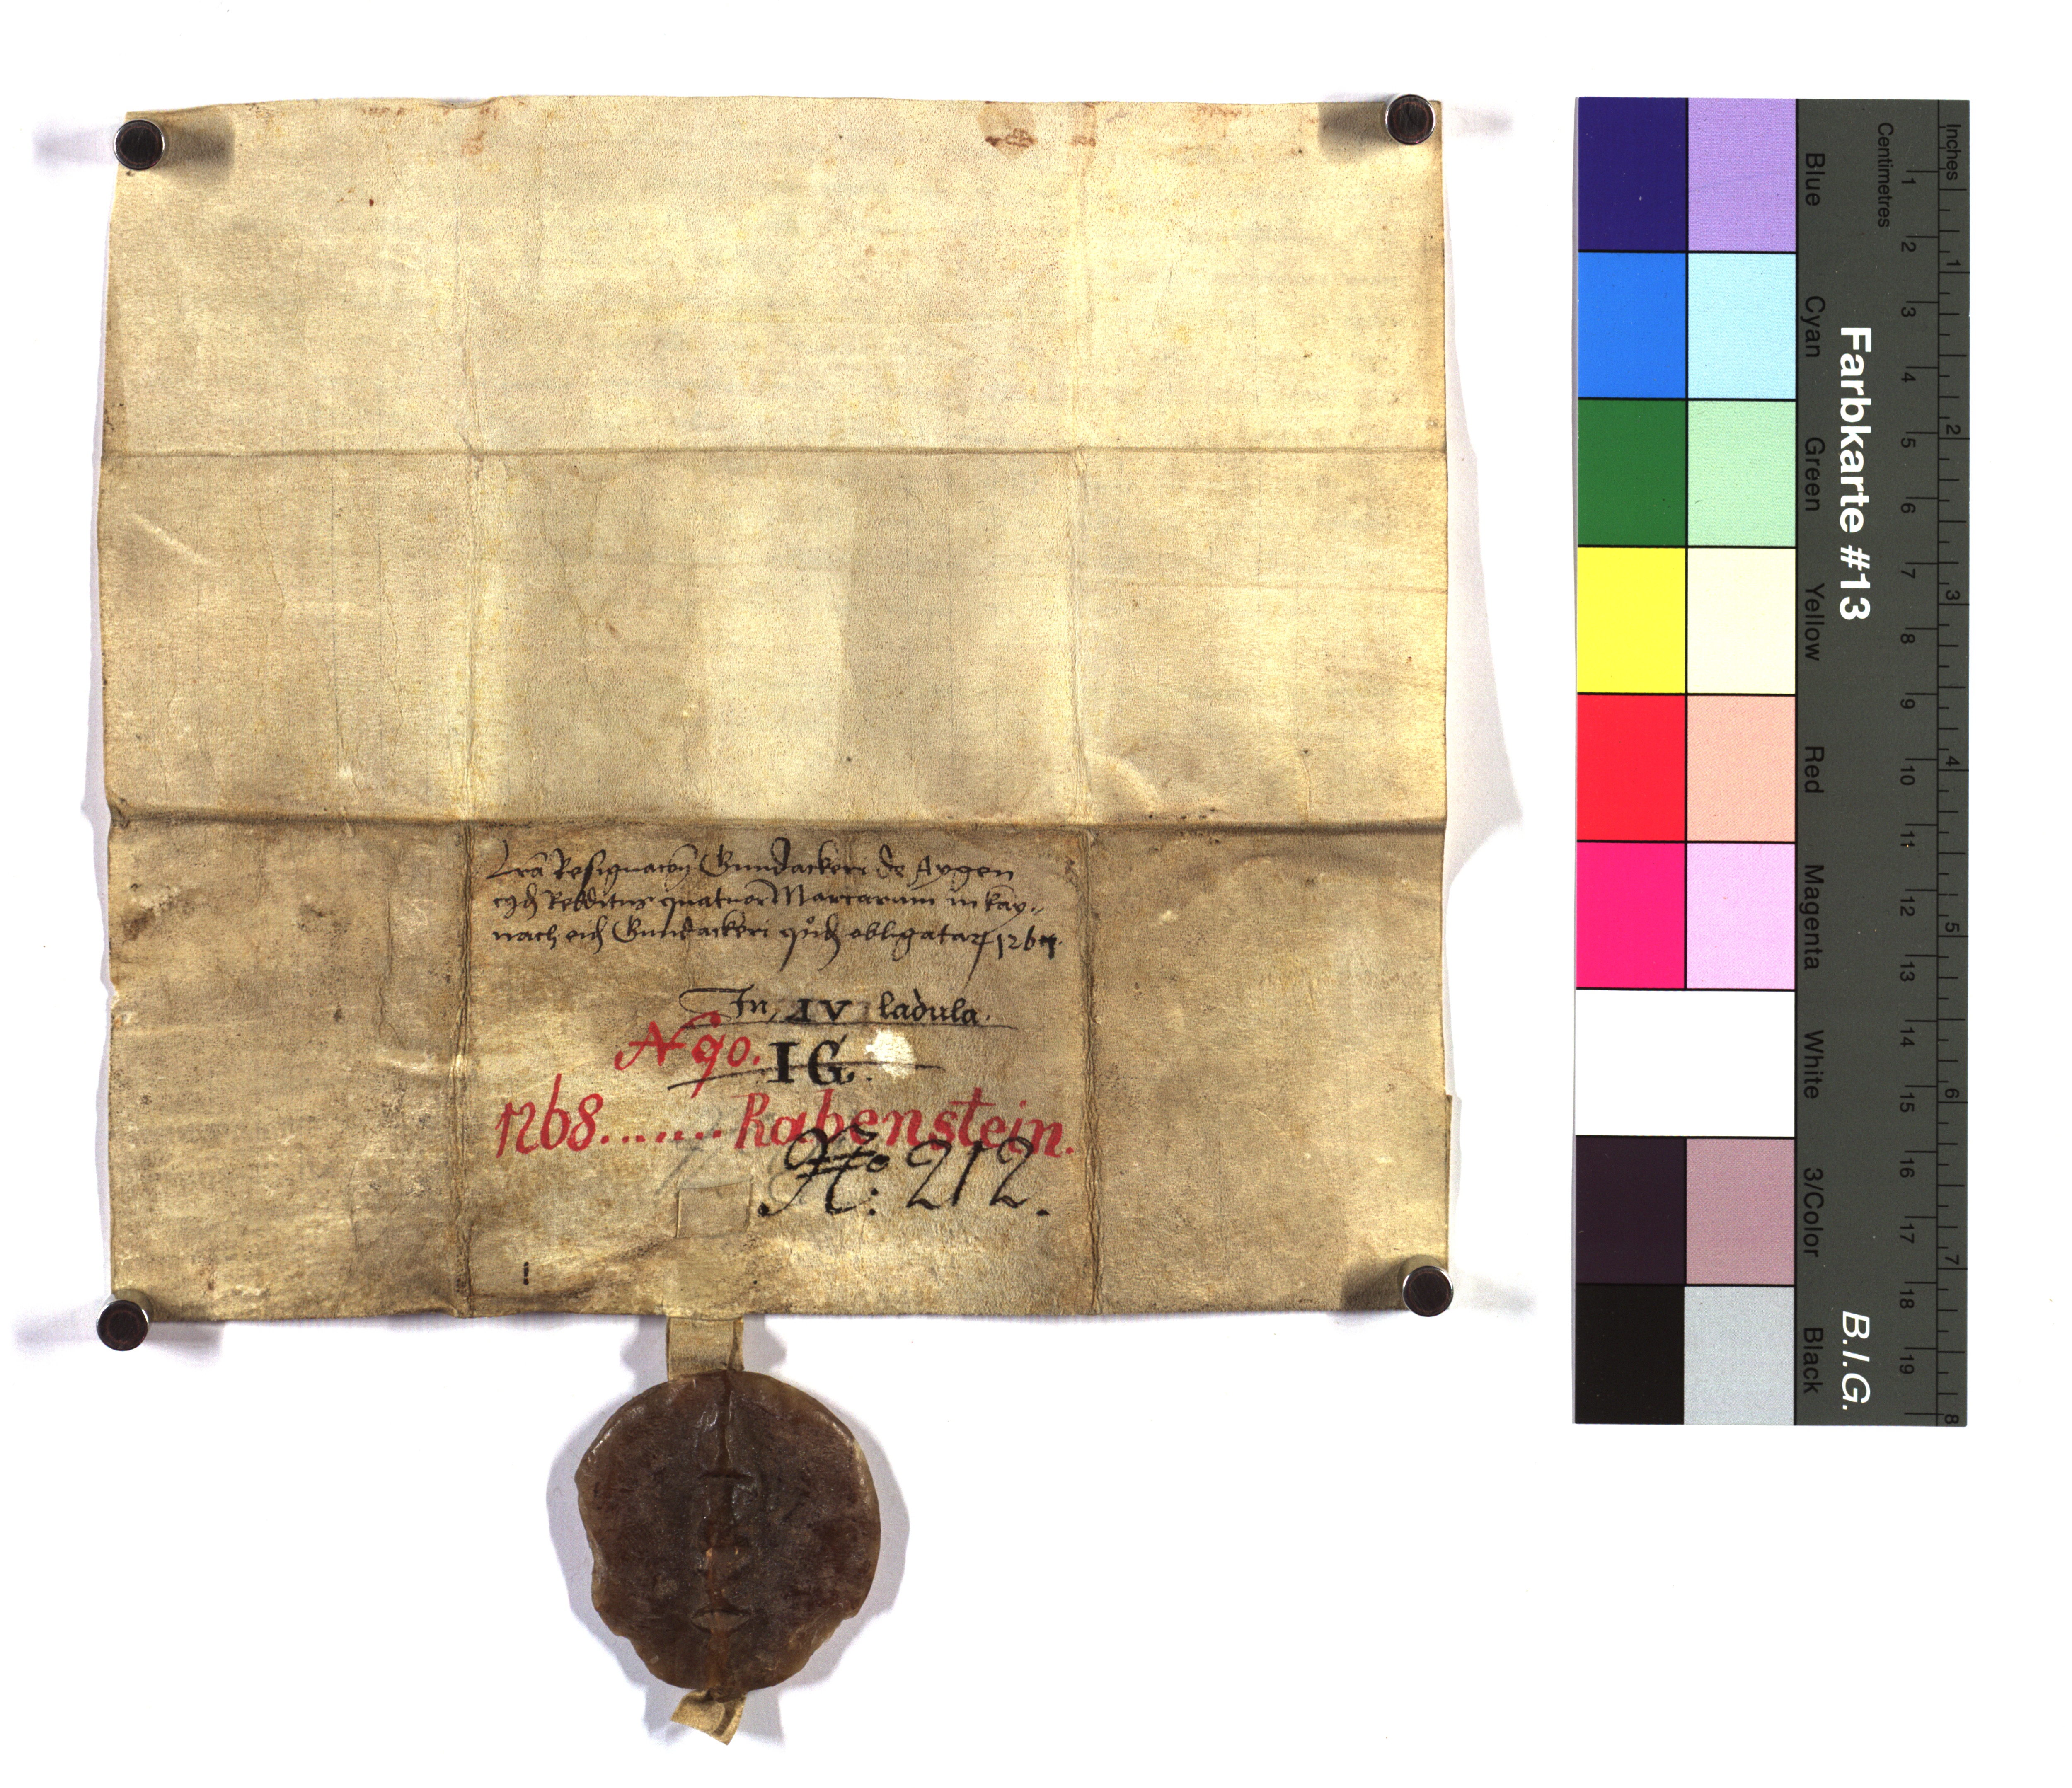 Lrā Resignacoīs Gundackeri de Aygen
Redditus quatuor Marcarum in kay„
nach Gundackeri obligatar 126
In IV ladula.
N 90. IG.
1268....... Rabenstein.
No: 212.
Farbkarte #13
B.I.G.
Blue
Cyan
Green
Yellow
Red
Magenta
White
3/Color
Black
Centimetres
1 2 3 4 5 6 7 8 9 10 11 12 13 14 15 16 17 18 19
Inches
1 2 3 4 5 6 7 8